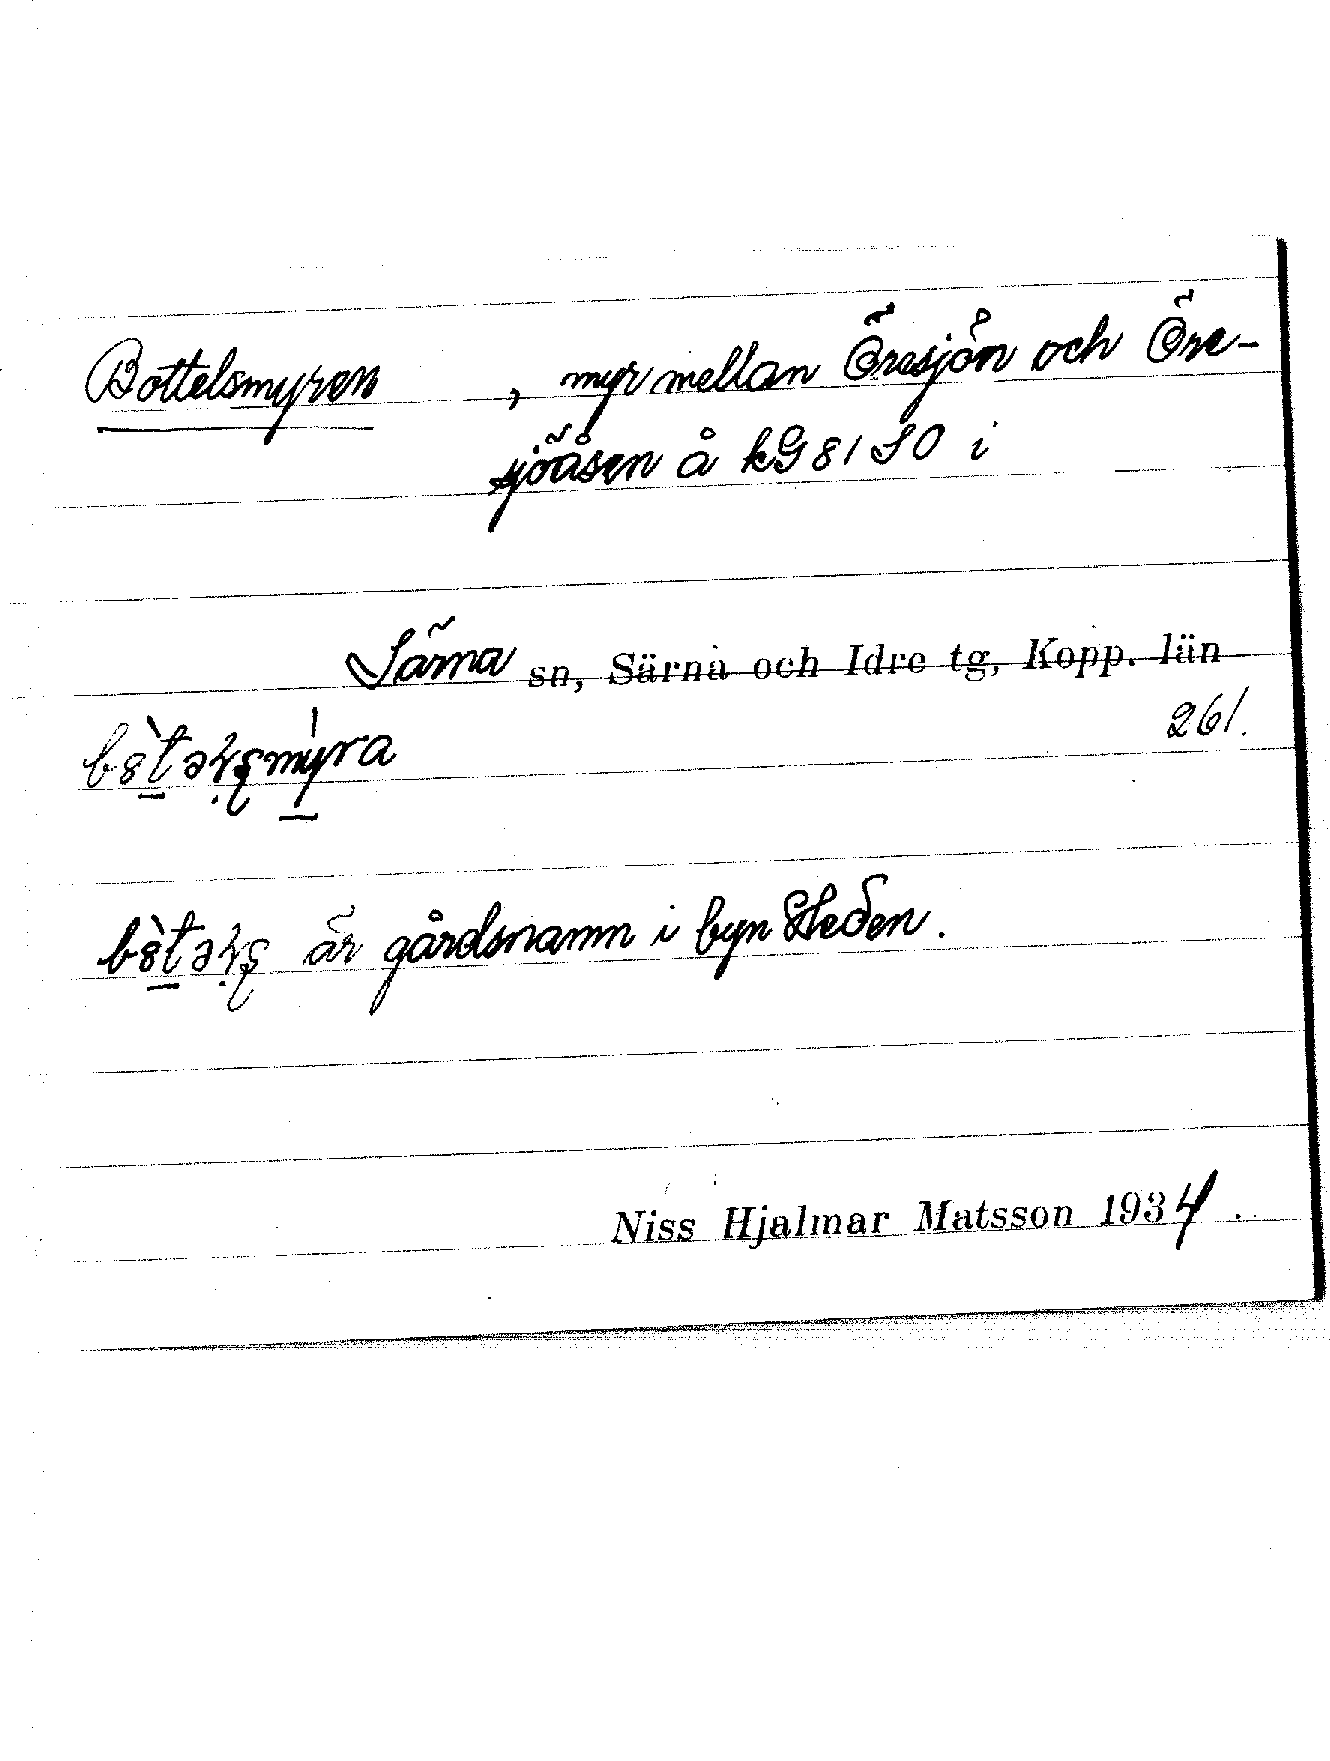 Bottelsmyren , myr mellan Öresjön och Öre-
sjöåsen å kG 81 SO i
Särna sn, Särna och Idre tg, Kopp. län
261.
är gårdsnamn i byn Heden.
Niss Hjalmar Matsson 1934.